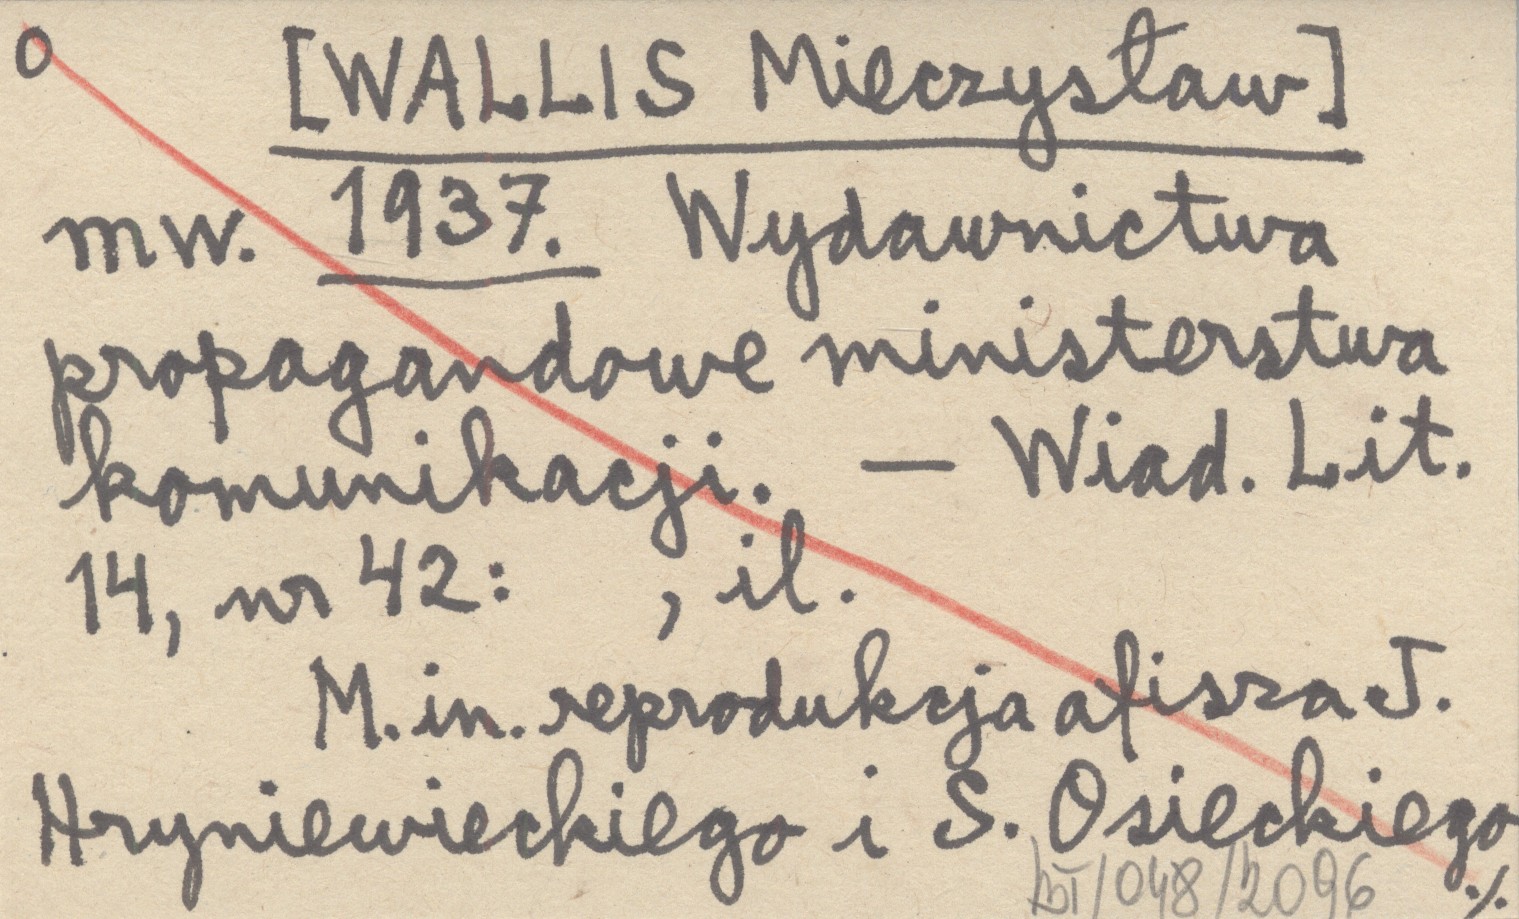 O [WALLIS Mieczysław]
mw. 1937. Wydawnictwa
propagandowe ministerstwa
komunikacji. — Wiad. Lit.
14, nr 42: , il.
M. in. reprodukcja afisza J.
Hryniewieckiego i S. Osieckiego
/048/2096 ./.